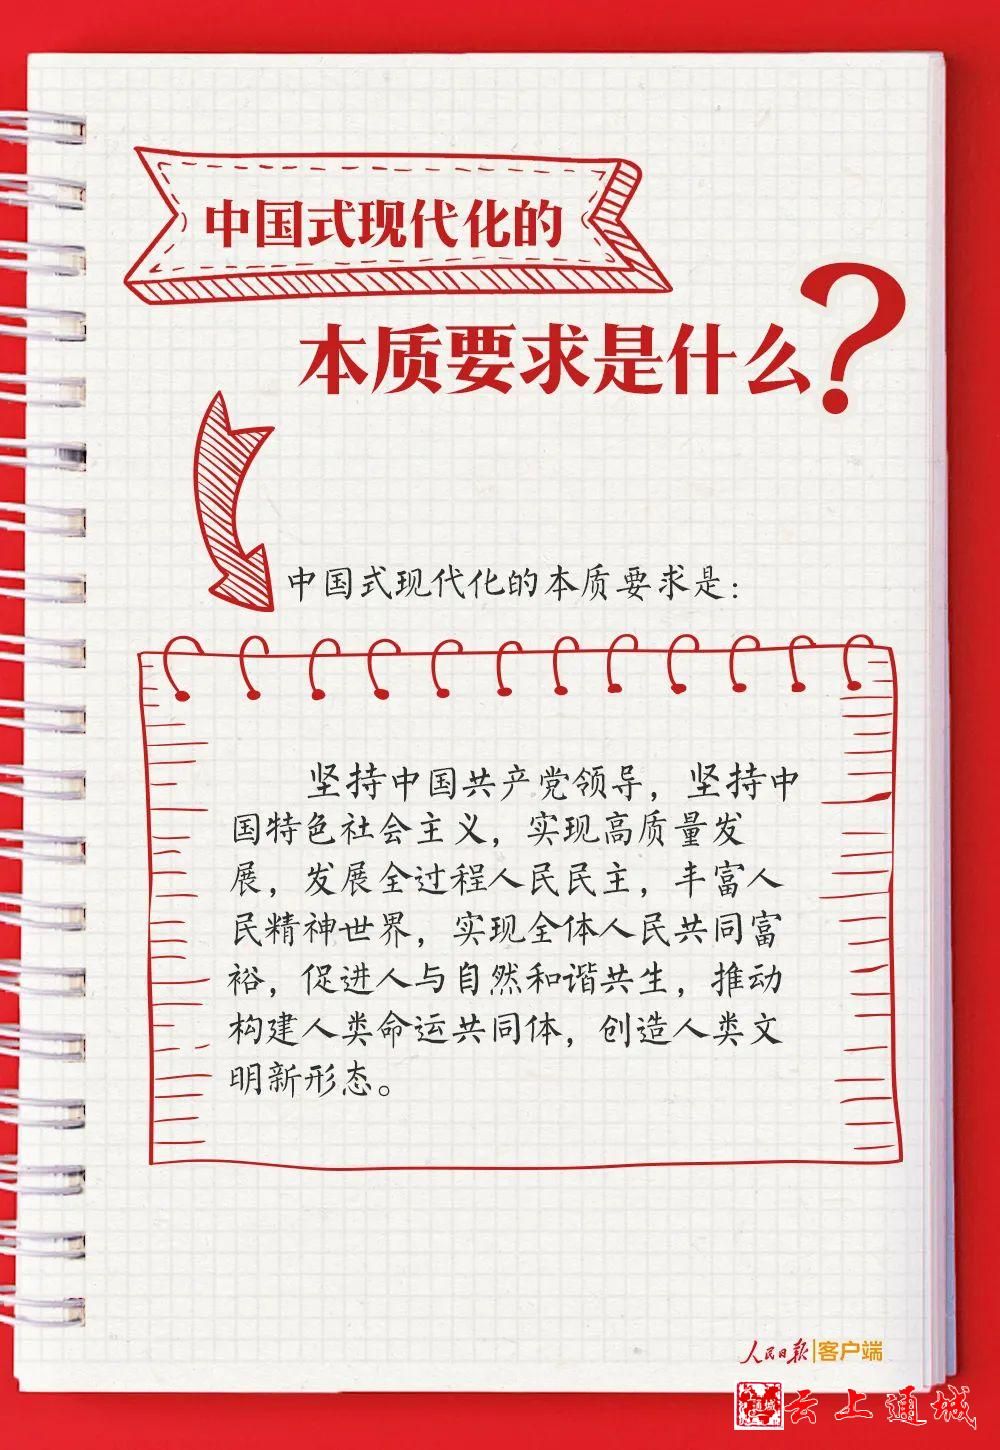 中国式现代化的
本质要求是什么?
中国式现代化的本质要求是：
坚持中国共产党领导，坚持中
国特色社会主义，实现高质量发
展，发展全过程人民民主，丰富人
民精神世界，实现全体人民共同富
裕，促进人与自然和谐共生，推动
构建人类命运共同体，创造人类文
明新形态。
人民日报|客户端
通城 云上通城